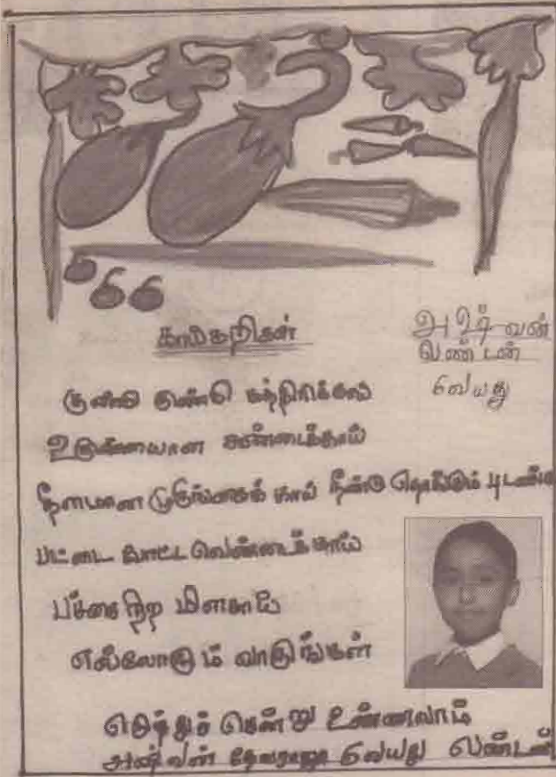 காய்கறிகள்
லண்டன்
6வயது
குண்டு குண்டு கத்திரிக்காய்
உருண்டையான சுண்டைக்காய்
நீளமான முருங்கைக் காய் நீண்டு தொங்கும் புடலங்
பட்டை போட்ட வெண்டைக்காய்
பச்சை நிற மிளகாய்
எல்லோரும் வாருங்கள்
எடுத்துச் சென்று உண்ணலாம்
அஷ்வன் தேவராஜா 6வயது லண்டன்